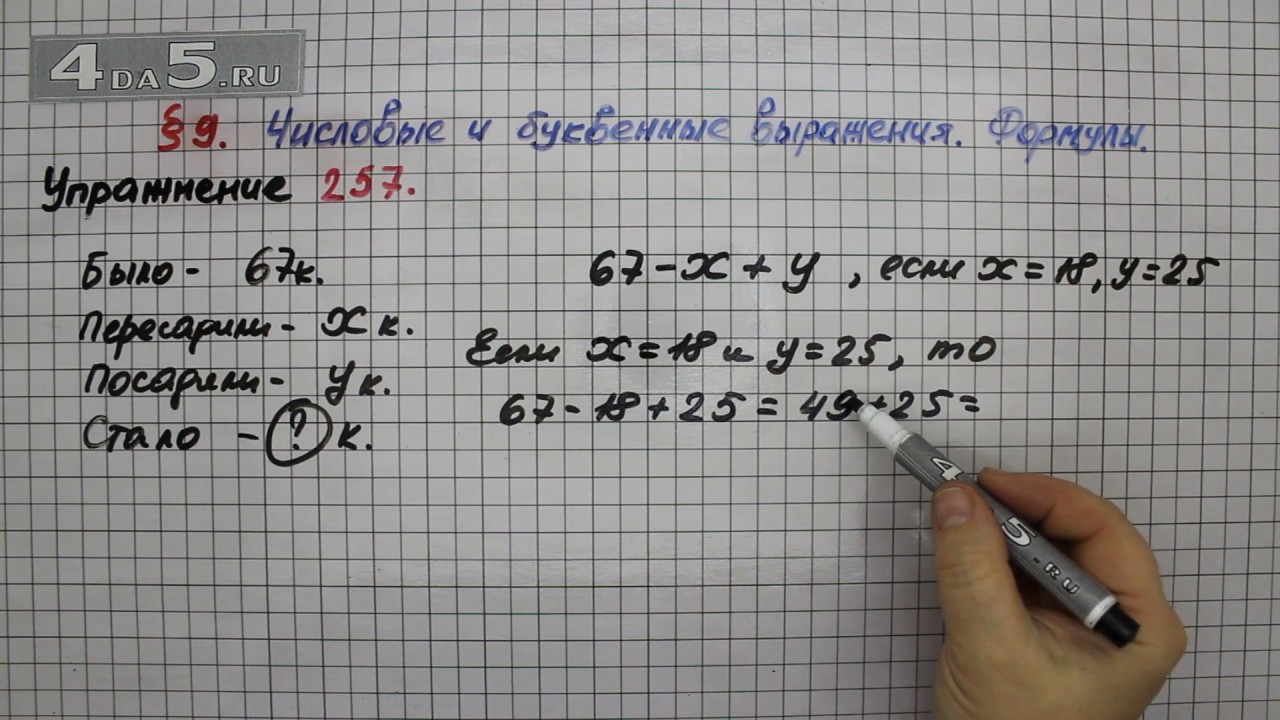 4DA5.RU
§ 9. Числовые и буквенные выражения. Формулы.
Упражнение 257.
Было - 67к.
Пересадили - x к.
Посадили - y к.
Стало - ? к.
67 - x + y , если x = 18, y = 25
Если x = 18 и y = 25, то
67 - 18 + 25 = 49 + 25 =
4 5.RU